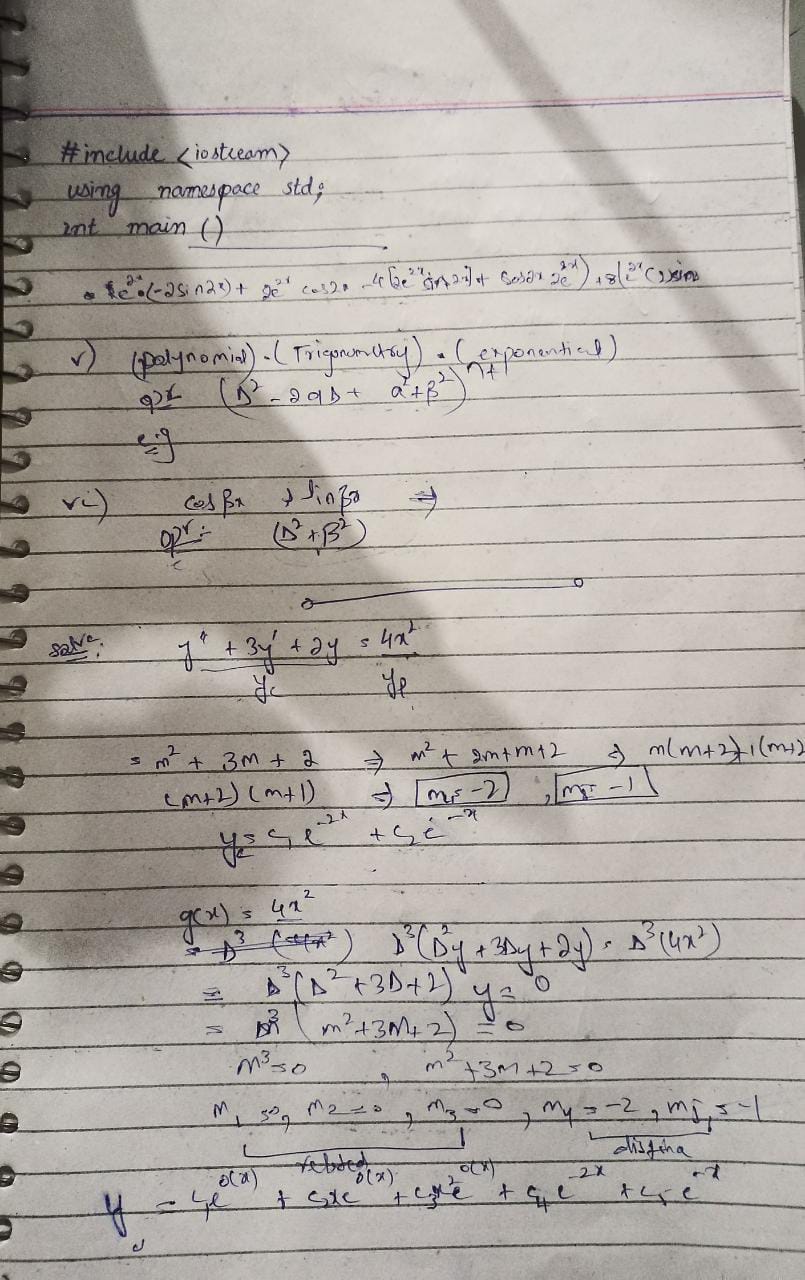 #include <iostream>
using namespace std;
int main ()
e²ˣ(-2sin2x) + 2e²ˣ cos2x -4[2e²ˣ sin2x] + cos2x 2e²ˣ) +8(e²ˣ
v) (polynomial) . (Trigonometry) . (exponential)
opr (D² - 2αD + α² + β²)ⁿ⁺
eig
vi) cos βx , sin βx ⇒
opr :- (D² + β²)
solve: y" + 3y' + 2y = 4x²
yc yp
= m² + 3m + 2 ⇒ m² + 2m+m+2 ⇒ m(m+2)+1(m+2
(m+2) (m+1) ⇒ m₁= -2 , m₂= -1
yc= c₁ e⁻²ˣ + c₂ e⁻ˣ
g(x) = 4x²
= D³ (4x²) D³(D²y + 3Dy + 2y) = D³(4x²)
= D³(D² + 3D + 2) y = 0
= m³ ( m² + 3m + 2) = 0
m³ = 0 , m² + 3m + 2 = 0
m₁ = 0, m₂ = 0 , m₃ = 0 , m₄ = -2 , m₅ = -1
y = c₁e⁰⁽ˣ⁾ + c₂xe⁰⁽ˣ⁾ + c₃x²e⁰⁽ˣ⁾ + c₄ e⁻²ˣ + c₅ e⁻ˣ